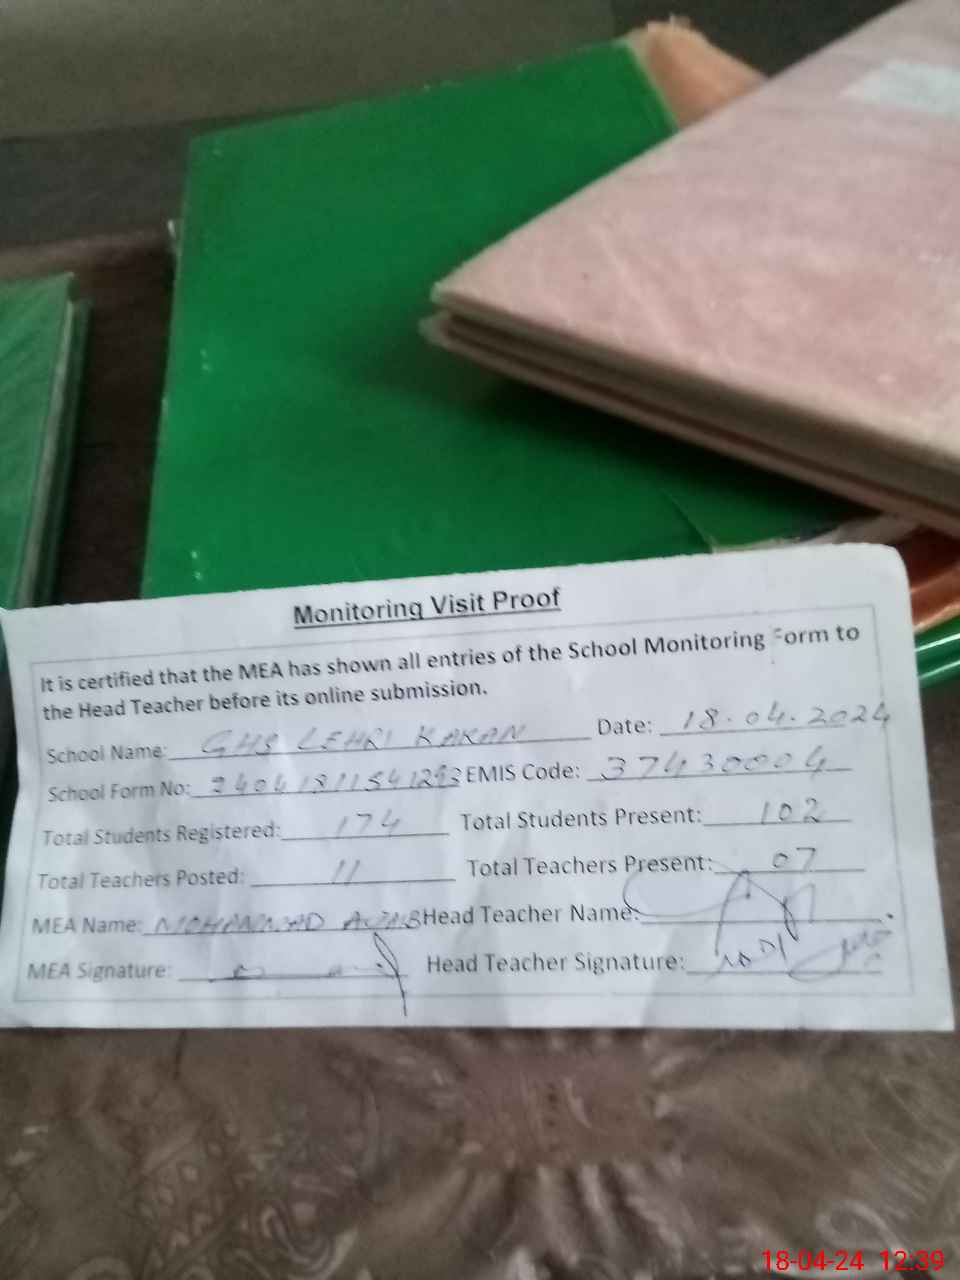 Monitoring Visit Proof
It is certified that the MEA has shown all entries of the School Monitoring Form to
the Head Teacher before its online submission.
School Name: GHS LEHRI KAKAN Date: 18.04.2024
School Form No: EMIS Code: 37430004
Total Students Registered: 174 Total Students Present: 102
Total Teachers Posted: 11 Total Teachers Present: 07
MEA Name: MOHAMMAD Head Teacher Name:
MEA Signature: Head Teacher Signature:
18-04-24 12:39